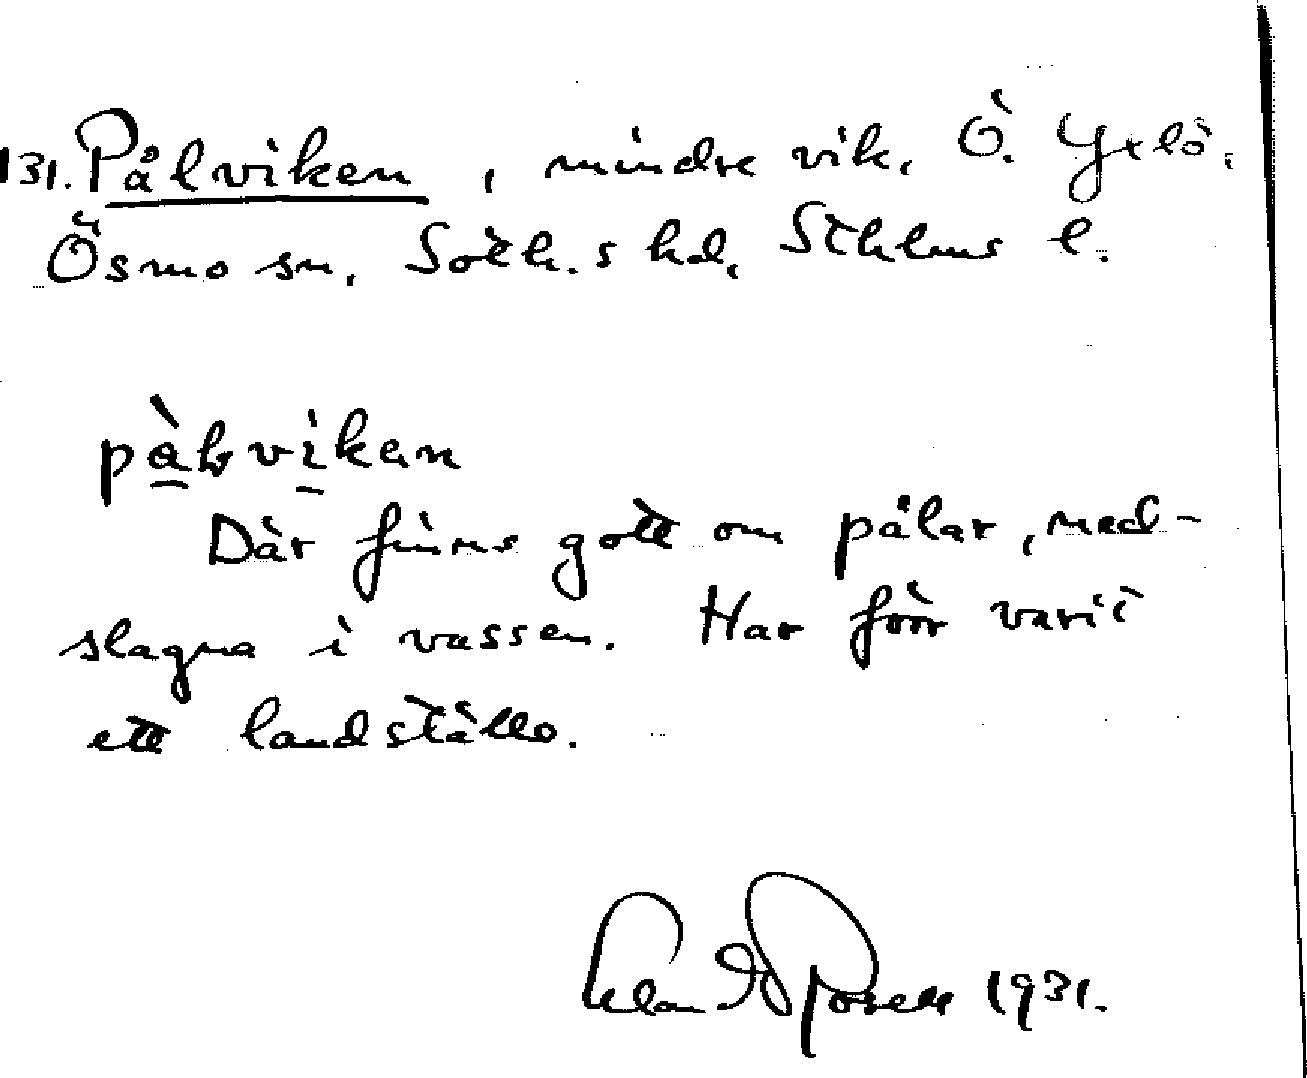 131. Pålviken, mindre vik. Ö. Yxlö.
Ösmo sn. Soth.s hd. Sthlms l.
pàlvikan
Där finns gott om pålar, ned-
slagna i vassen. Har förr varit
ett landställe.
1931.